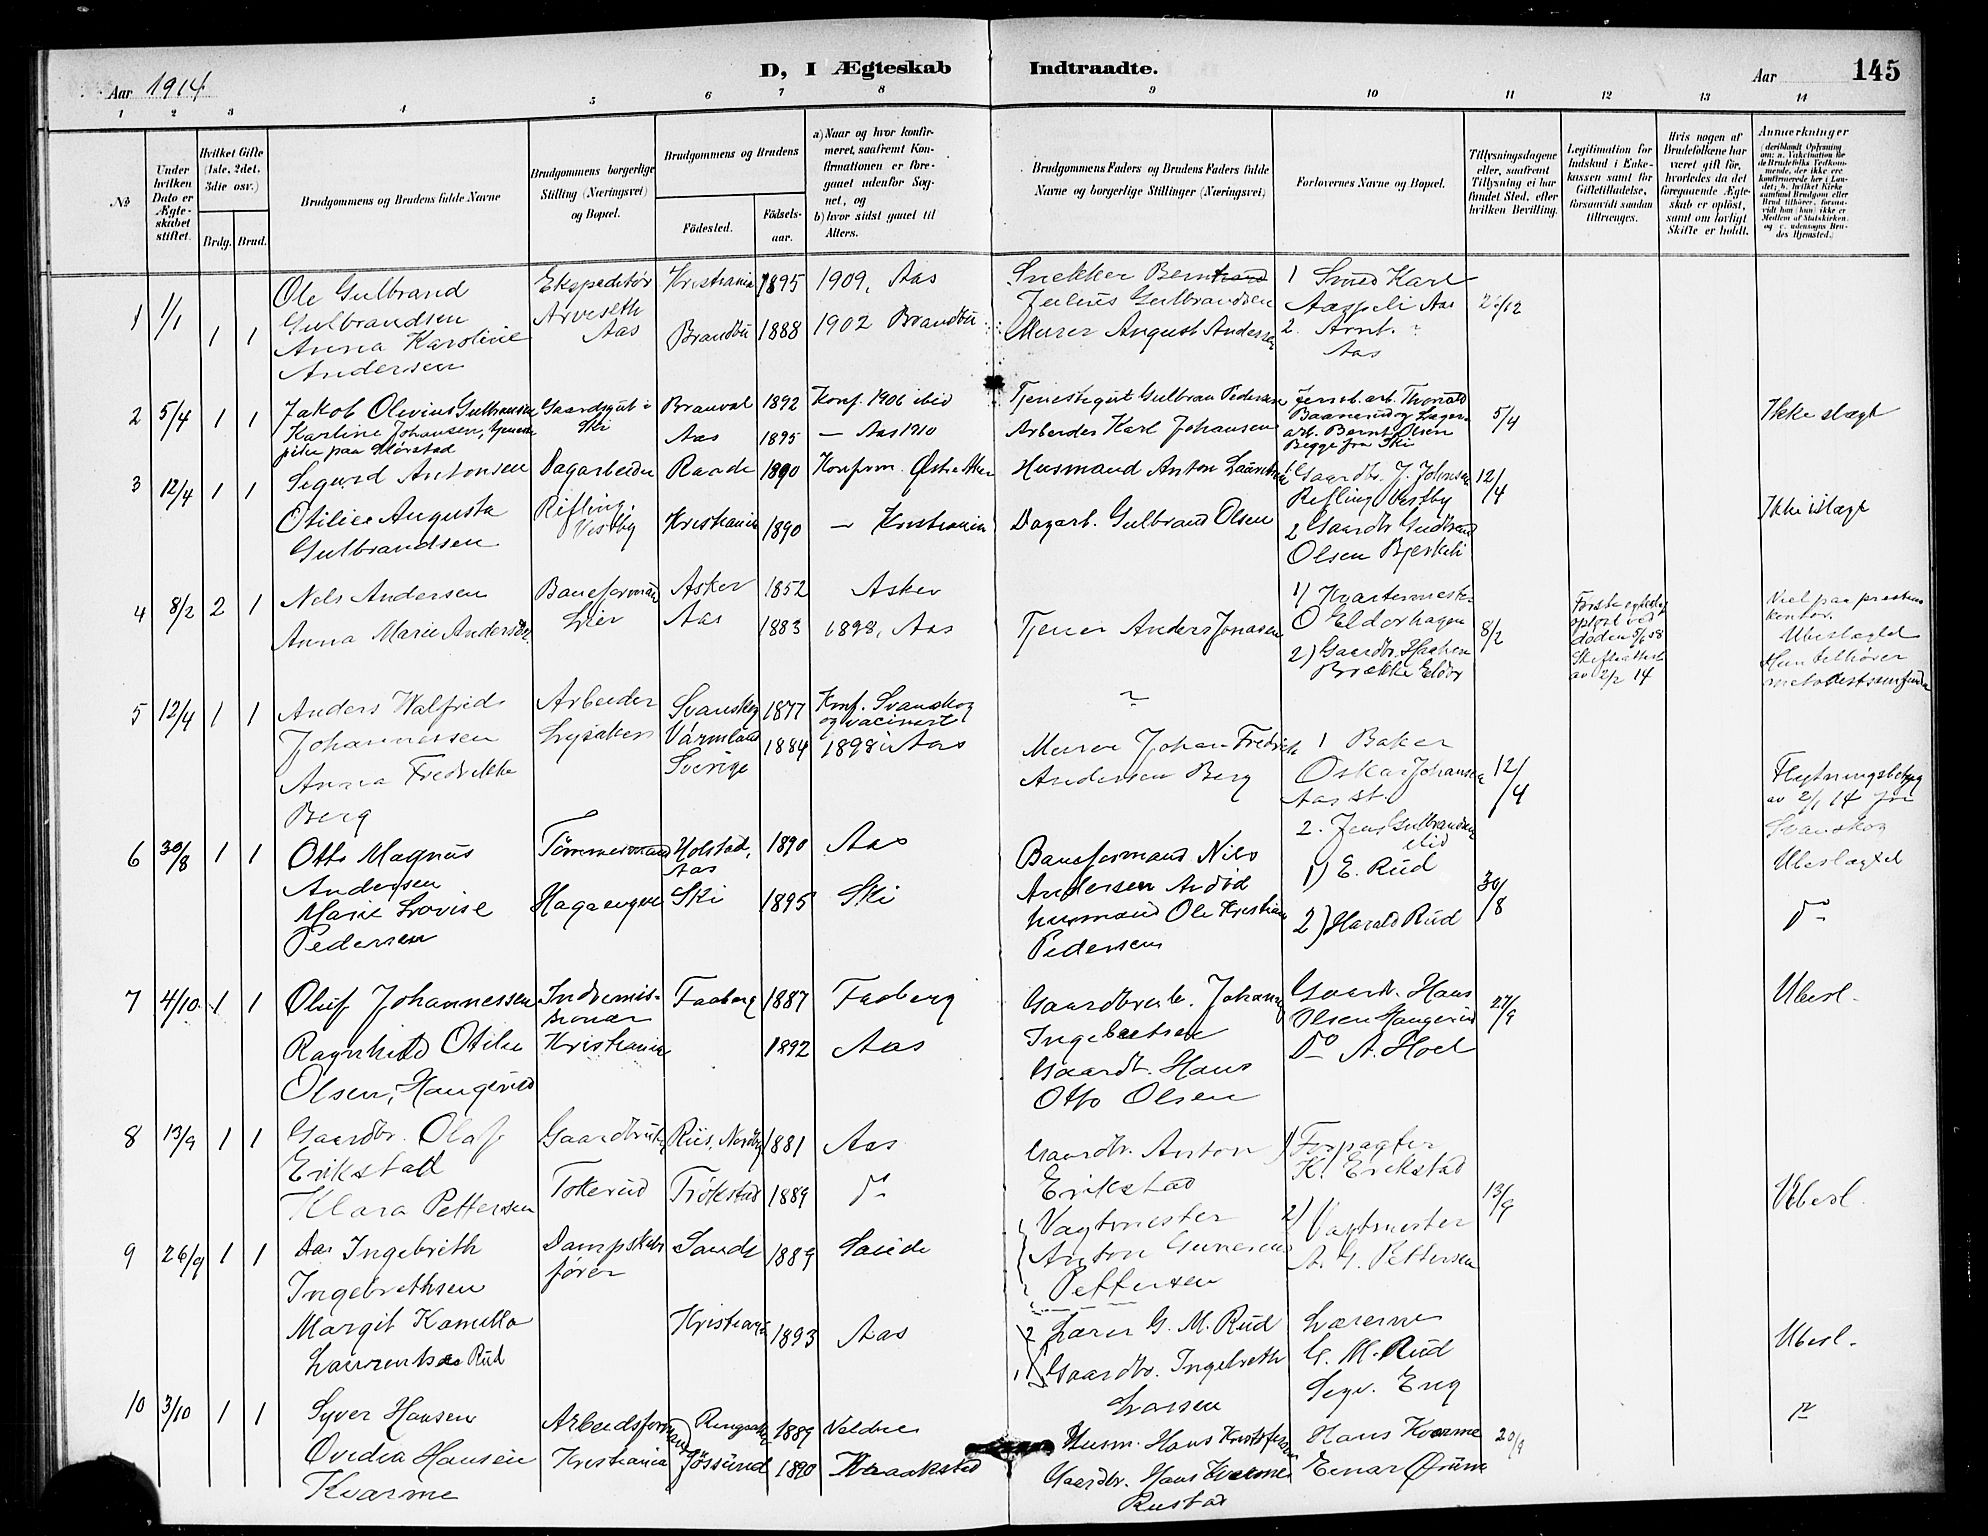 Aar 1914
D, I Ægteskab Indtraadte.
Aar
145
1 2 3 4 5 6 7 8 9 10 11 12 13 14
No
Under hvilken Dato er Ægteskabet stiftet.
Hvilket Gifte (1ste, 2det, 3die osv.)
Brdg. Brud.
Brudgommens og Brudens fulde Navne
Brudgommens borgerlige Stilling (Næringsvei) og Bopæl.
Brudgommens og Brudens
Fødested. Fødselsaar.
a) Naar og hvor konfirmeret, saafremt Konfirmationen er foregaaet udenfor Sognet, og
b) hvor sidst gaaet til Alters.
Brudgommens Faders og Brudens Faders fulde Navne og borgerlige Stillinger (Næringsvei)
Forlovernes Navne og Bopæl.
Tillysningsdagene eller, saafremt Tillysning ei har fundet Sted, efter hvilken Bevilling.
Legitimation for Indskud i Enkekassen samt for Giftetilladelse, forsaavidt saadan tiltrænges.
Hvis nogen af Brudefolkene har været gift før, hvorledes da det foregaaende Ægteskab er opløst, samt om lovligt Skifte er holdt.
Anmerkninger
1 1/1 1 1
Ole Gulbrand
Gulbrandsen
Anna Karoline
Andersen
Ekspeditør
Arveseth
Aas
Kristiania 1895 1909, Aas
Brandbu 1888 1902 Brandbu
Snekker
Julius Gulbrandsen
Murer August Andersen
1 Smed Karl
Aaspeli Aas
2. Arnt. ~
Aas
2 5/4 1 1
Jakob Olivius Gulbransen
Karline Johansen,
Gaardsgut i
Ski
1892 Konf. 1906 ibid
Aas 1895 — Aas 1910
Tjenestegut Gulbran Pedersen
Arbeider Karl Johansen
arb. Bernt Olsen
Begge fra Ski
5/4
Ikke slægt
3 12/4 1 1
Sigurd Antonsen
Otilie Augusta
Gulbrandsen
Dagarbeider
Rifling.
Vestby
Raade 1890
Kristiania 1890 — Kristiania
Husmand Anton
Dagarb. Gulbrand Olsen
1 Gaardbr. J. Johnsen
Rifling Vestby
2 Gaardbr Gudbrand
Olsen
12/4
Ikke i slægt
4 8/2 2 1
Nels Andersen
Anna Marie Andersen
Baneformand
Asker 1852 Asker
Aas 1883 1898, Aas
Tjener Anders Jonasen
1) Kvartermest.
O Elderhagen
2) Gaardbr. Haaken
Brække Eldor
8/2
Første egteskap
opløst ved
døden
Skifteattest
av 2/2 14
Viet paa prestens
kontor.
Ubeslægtet
Hun tilhører
metodistsamfundet
5 12/4 1 1
Anders Walfrid
Johannesen
Anna Fredrikke
Berg
Arbeider
Lysaker
Svanskog
Värmland
Sverige
1877 Konf. Svanskog
og vacinert
1884 1898 i Aas
~
Murer Johan Fredrik
Andersen Berg
1 Baker
Oskar Johansen
Aas st.
2. Jens Gulbrandsen
ibid
12/4
Flytningsbetyg
av 2/1 14 fra
Svanskog
6 30/8 1 1
Otto Magnus
Andersen
Marie Lovise
Pedersen
Tømmermand
Hagaengen
Holstad,
Aas 1890 Aas
Ski 1895 Ski
Baneformand Nils
Andersen
husmand Ole Kristian
Pedersen
1) E. Rud
2) Harald Rud
30/8
Ubeslægtet
Do
7 4/10 1 1
Oluf Johannessen
Ragnhild Otilie
Olsen, Haugerud
Indremis-
sionær
Kristiania
Faaberg 1887 Faaberg
1892 Aas
Gaardbruk. Johannes
Ingebretsen
Gaardbr. Hans
Otto Olsen
Gaardb. Hans
Olsen Haugerud
Do A. Hoel
27/9
Ubesl.
8 13/9 1 1
Gaardbr. Olaf
Erikstad
Klara Pettersen
Gaardbruker
Tokerud
Riis, Nordby 1881 Aas
Trøkstad 1889 Do
Gaardbr. Anton
Erikstad
Vagtmester
Anton Gunerius
Pettersen
1) Forpagter
K. Erikstad
2) Vagtmester
A. G. Pettersen
13/9
Ubesl.
9 26/9 1 1
Ingebreth
Ingebrethsen
Margit Kamilla
Laurentse Rud
Dampskibs
fører
Sande 1889 Sande
Kristiania 1893 Aas
2 Lærer G. M. Rud
1 Gaardbr. Ingebreth
Larsen
Lærerne
G. M. Rud
Sigv. Eng
Ubesl.
10 3/10 1 1
Syver Hansen
Ovidia Hansen
Kvarme
Arbeidsformand
Kristiania
Ringsaker 1889 Veldre
Jøssund 1890 Kraakstad
Husm. Hans Kristofersen
Gaardbr. Hans Kvarme
Rustad
Hans Kvarme
Einar Ørum
20/9
Do